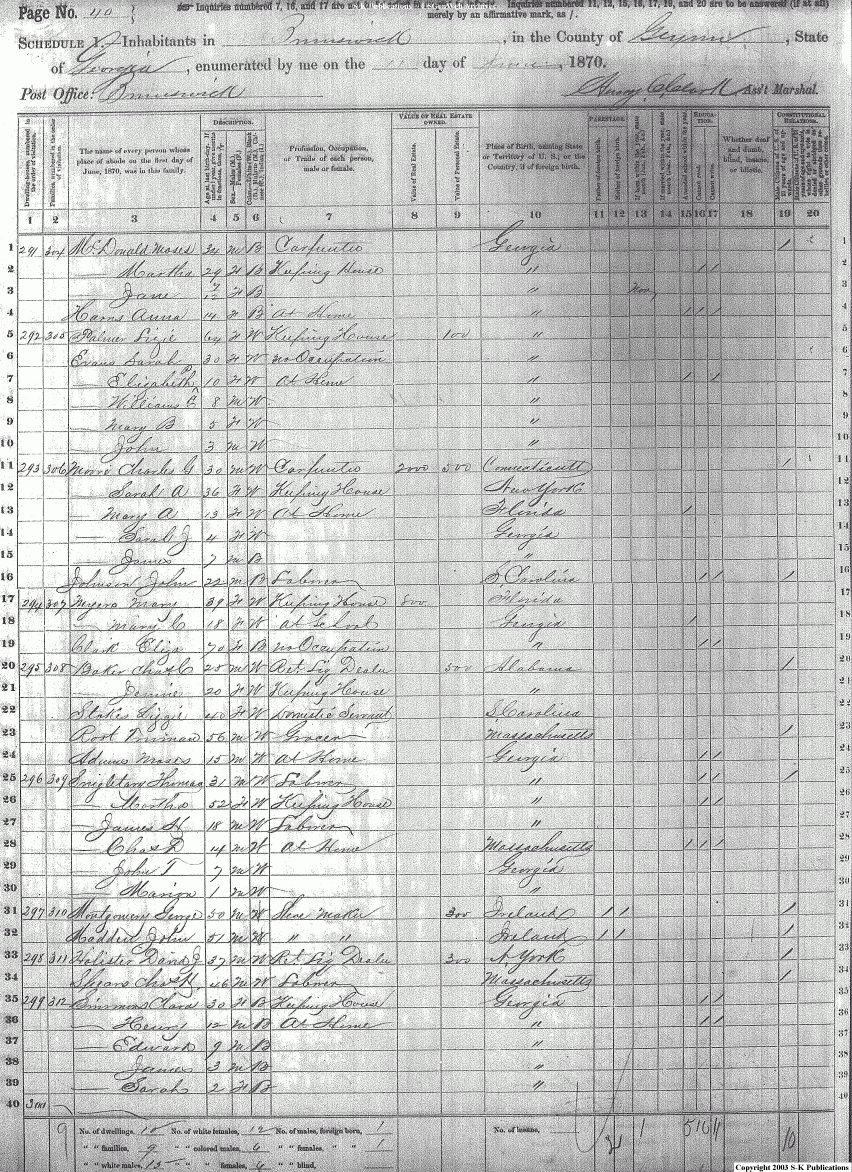 Page No. 40
Inquiries numbered 7, 16, and 17 are not
S-K Publications USGenWeb Archives
Inquiries numbered 11, 12, 15, 16, 17, 19, and 20 are to be answered (if at all)
merely by an affirmative mark, as /.
SCHEDULE 1.—Inhabitants in Brunswick, in the County of Glynn, State
of Georgia, enumerated by me on the 11 day of June, 1870.
Post Office: Brunswick Ass't Marshal.
DESCRIPTION. VALUE OF REAL ESTATE OWNED. PARENTAGE. EDUCATION. CONSTITUTIONAL RELATIONS.
Dwelling-houses, numbered in the order of visitation.
Families, numbered in the order of visitation.
The name of every person whose place of abode on the first day of June, 1870, was in this family.
Profession, Occupation, or Trade of each person, male or female.
Value of Real Estate
Value of Personal Estate
Place of Birth, naming State or Territory of U. S.; or the Country, if of foreign birth.
Father of foreign birth.
Mother of foreign birth.
Cannot read.
Cannot write.
Whether deaf and dumb, blind, insane, or idiotic.
1 2 3 4 5 6 7 8 9 10 11 12 13 14 15 16 17 18 19 20
1 291 304 McDonald Moses 34 M B Carpenter Georgia / 1
2 — Martha 29 F B Keeping House " / / 2
3 — Jane 7/12 F B " Nov 3
4 Harris Anna 14 F B At Home " / / / 4
5 292 305 Palmer Lizie 64 F W Keeping House 100 " 5
6 Evans Sarah 30 F W no Occupation " 6
7 — Elizabeth P 10 F W At Home " / / 7
8 — Williams C 8 M W " 8
9 — Mary B 5 F W " 9
10 — John 3 M W " 10
11 293 306 Charles G 30 M W Carpenter 2000 500 Connecticutt / 11
12 — Sarah A 36 F W Keeping House New York 12
13 — Mary A 13 F W At Home Florida / 13
14 — Sarah J 4 F W Georgia 14
15 — James 7 M B " 15
16 Johnson John 22 M B Laborer S. Carolina / / / 16
17 294 307 Myers Mary 39 F W Keeping House 800 Florida 17
18 — Mary C 18 F W at School Georgia / 18
19 Clark Eliza 70 F B no Occupation " / / 19
20 295 308 Baker Chas C 25 M W Ret Lig Dealer 500 Alabama / 20
21 — Jennie 20 F W Keeping House " 21
22 Stokes Lizzie 40 F W Domestic Servant S. Carolina 22
23 Root Truman 56 M W Grocer Massachusetts / 23
24 Adams Moses 15 M W At Home Georgia / / 24
25 296 309 Singletary Thomas 31 M W Laborer " / / / 25
26 — Martha 52 F W Keeping House " / / 26
27 — James H 18 M W Laborer " 27
28 — Chas D 14 M W At Home Massachusetts / / / 28
29 — John T 7 M W Georgia 29
30 — Marion 1 M W " 30
31 297 310 Montgomery George 50 M W Shoe maker 300 Ireland / / / 31
32 Madden John 51 M W " " Ireland / / / 32
33 298 311 Holister David J 37 M W Ret Lig Dealer 300 N. York / 33
34 Spears Chas H 46 M W Laborer Massachusetts / 34
35 299 312 Simmons Clara 30 F B Keeping House Georgia / / 35
36 — Henry 12 M B At Home " / / 36
37 — Edward 9 M B " 37
38 — James 3 M B " 38
39 — Sarah 2 F B " 39
40 300 40
No. of dwellings, 10 No. of white females, 12 No. of males, foreign born, 1 No. of insane,
" " families, 9 " " colored males, 6 " " females, " " 1
" " white males, 15 " " " females, 6 " " blind,
Copyright 2003 S-K Publications